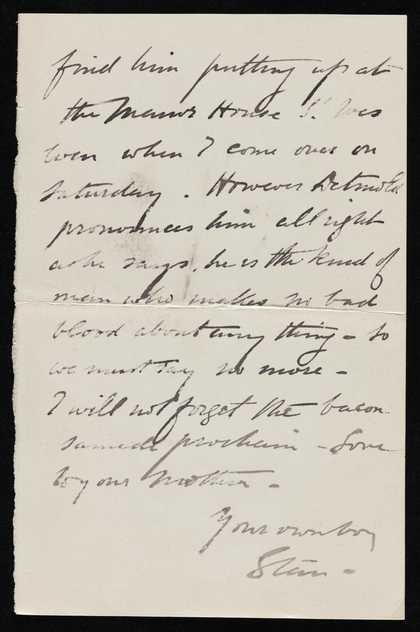 find him putting up at
the Manor House St Ives
even when I come over on
Saturday. However Detmold
pronounces him all right
as he says, he is the kind of
man who makes no bad
blood about any thing - so
we must say no more -
I will not forget the bacon
samedi prochain - Love
to your mother -
Your own boy
Stan -